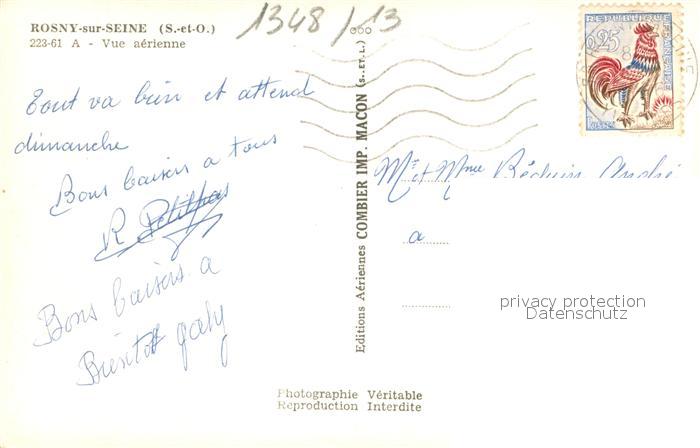 ROSNY-sur-SEINE (S.-et-O.)
223-61 A - Vue aérienne
1348/13
REPUBLIQUE
FRANÇAISE
0,25
Tout va bien et attend
dimanche
Bons baisers a tous
R
Bons baisers a
Bientot gaby
Editions Aériennes COMBIER IMP. MACON (S.-ET-L.)
Mr et Mme André
a
privacy protection
Datenschutz
Photographie Véritable
Reproduction Interdite